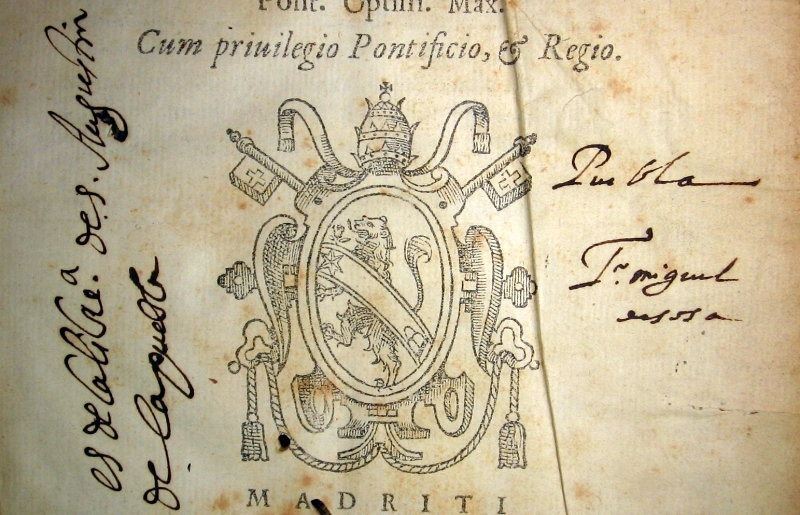 Pont. Optim. Max.
Cum priuilegio Pontificio, & Regio.
es de la libre.a de S. Augustin
de la puebla
Puebla
fr. miguel
de sosa
MADRITI